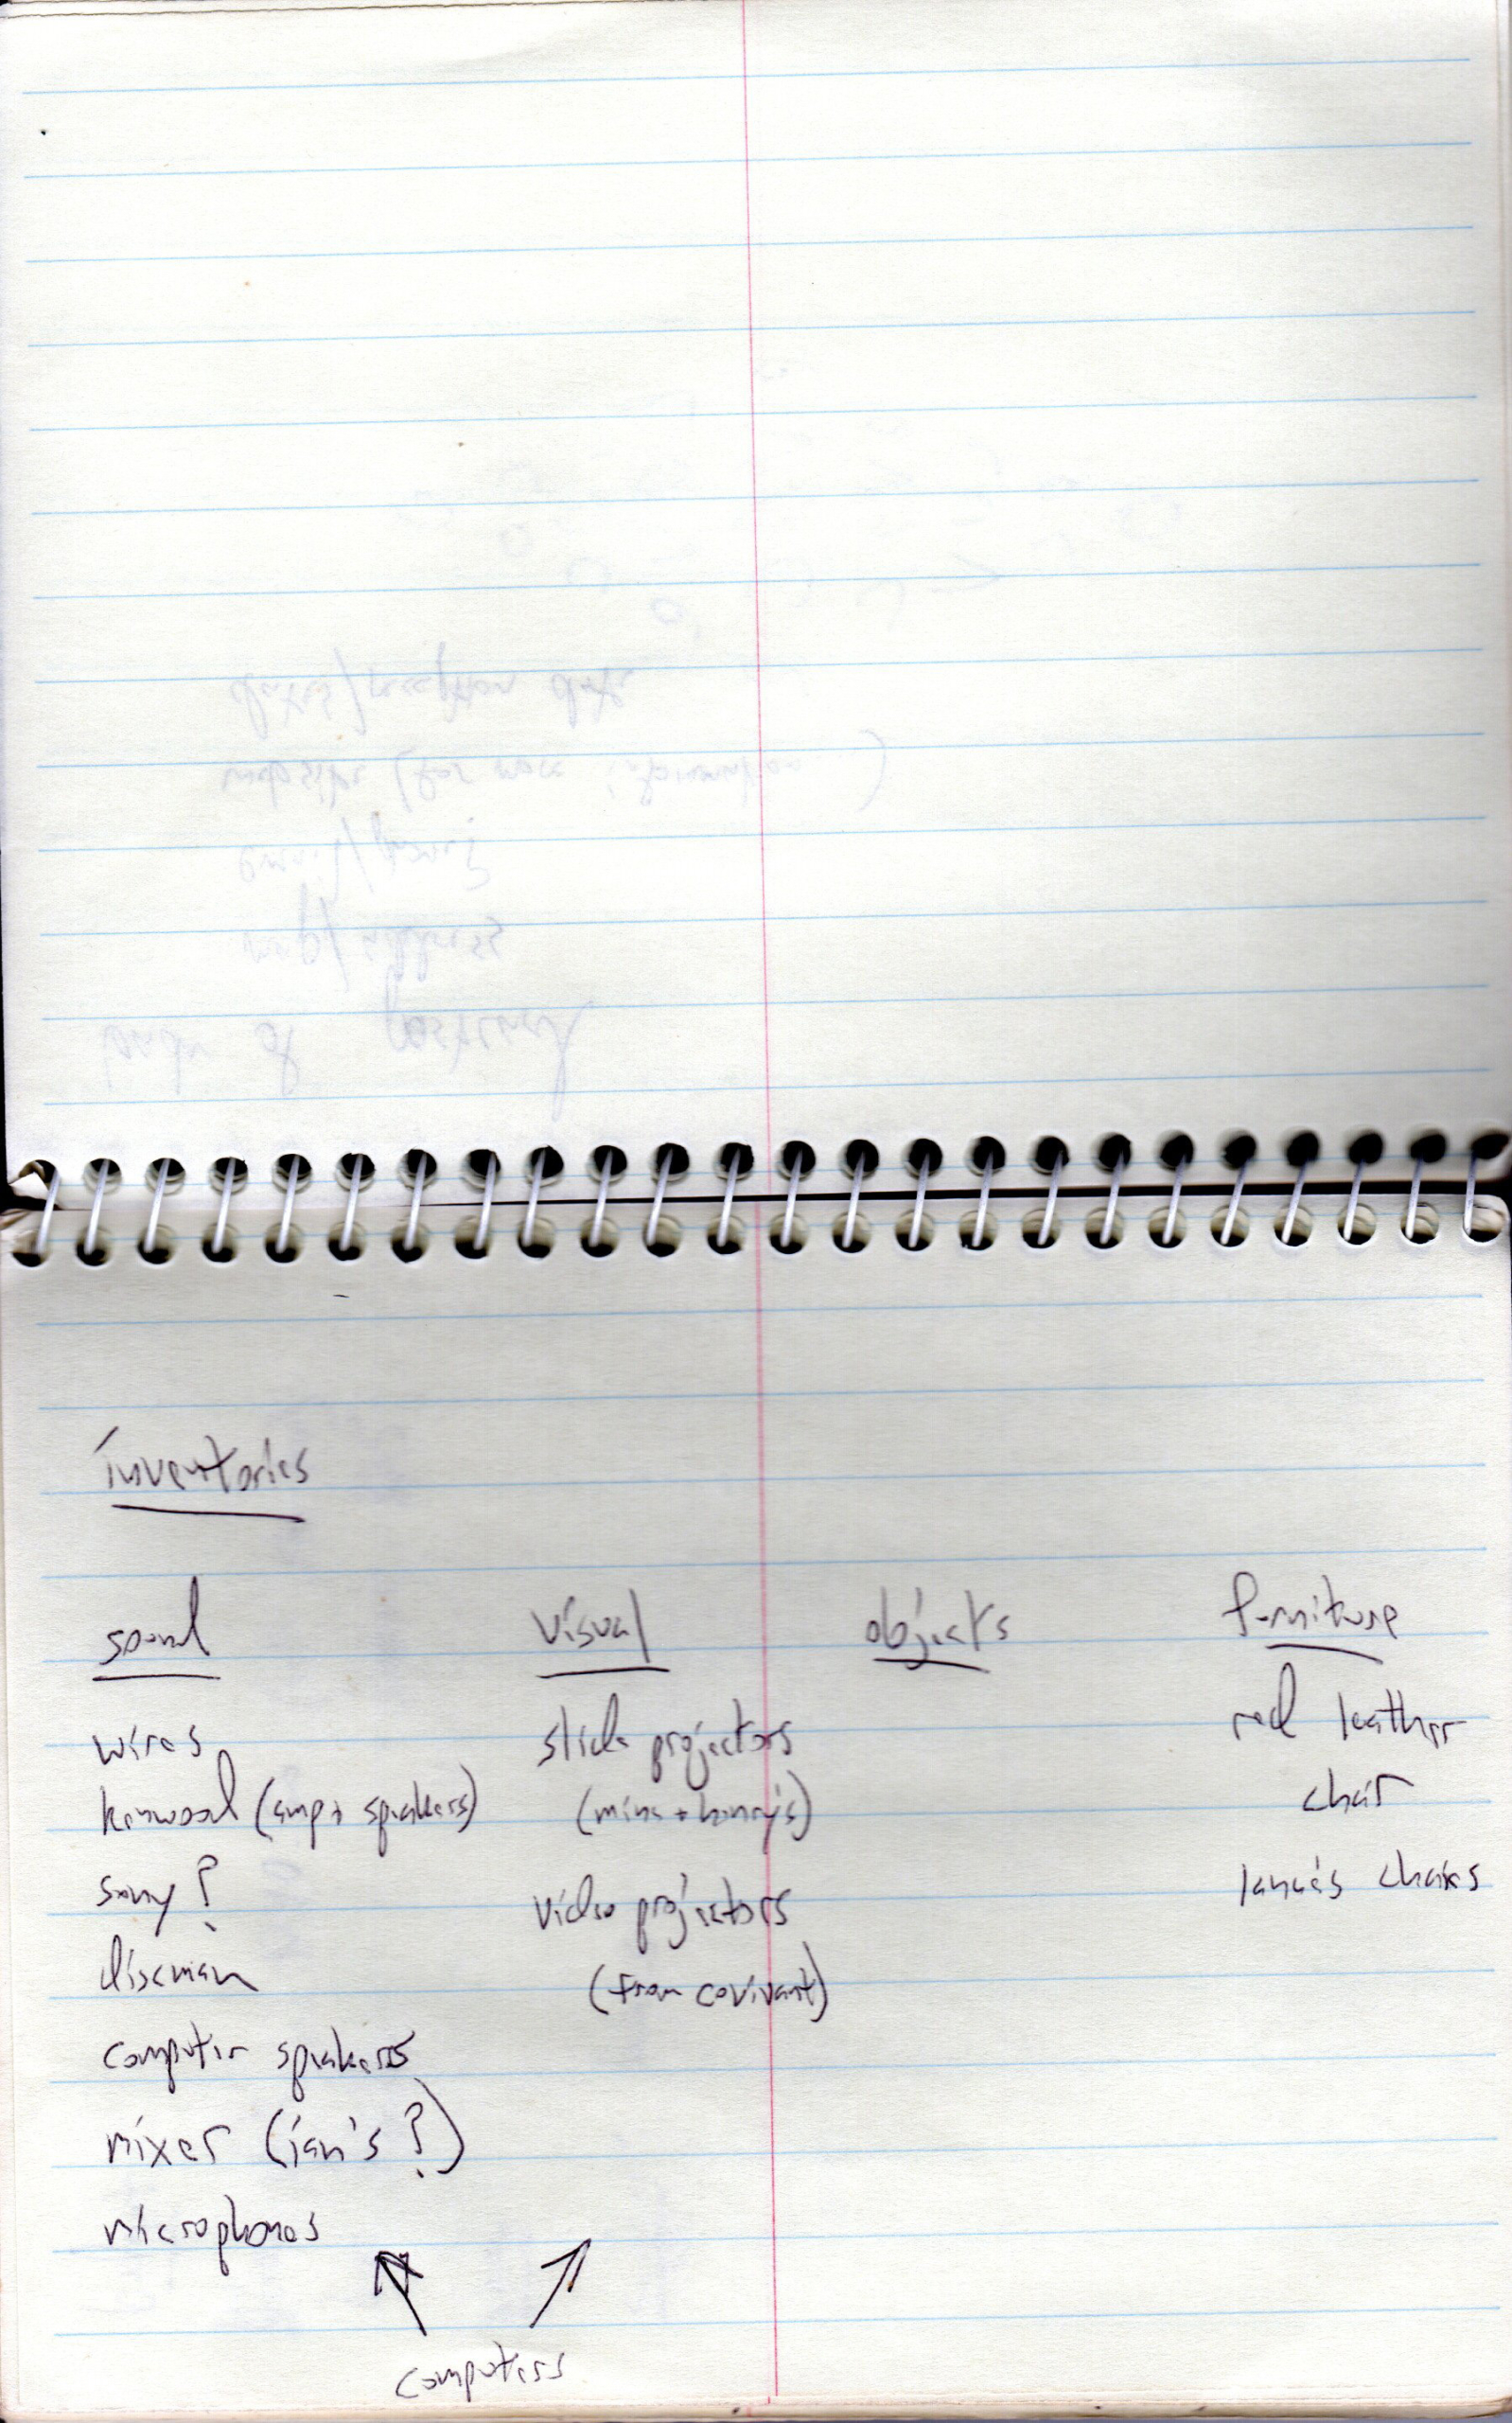 inventories
sound
visual
objects
furniture
wires
kenwood (amp + speakers)
sony?
discman
computer speakers
mixer (ian's?)
microphones
slide projectors
(mine + henry's)
video projectors
(from covivant)
red leather
chair
lance's chairs
computers